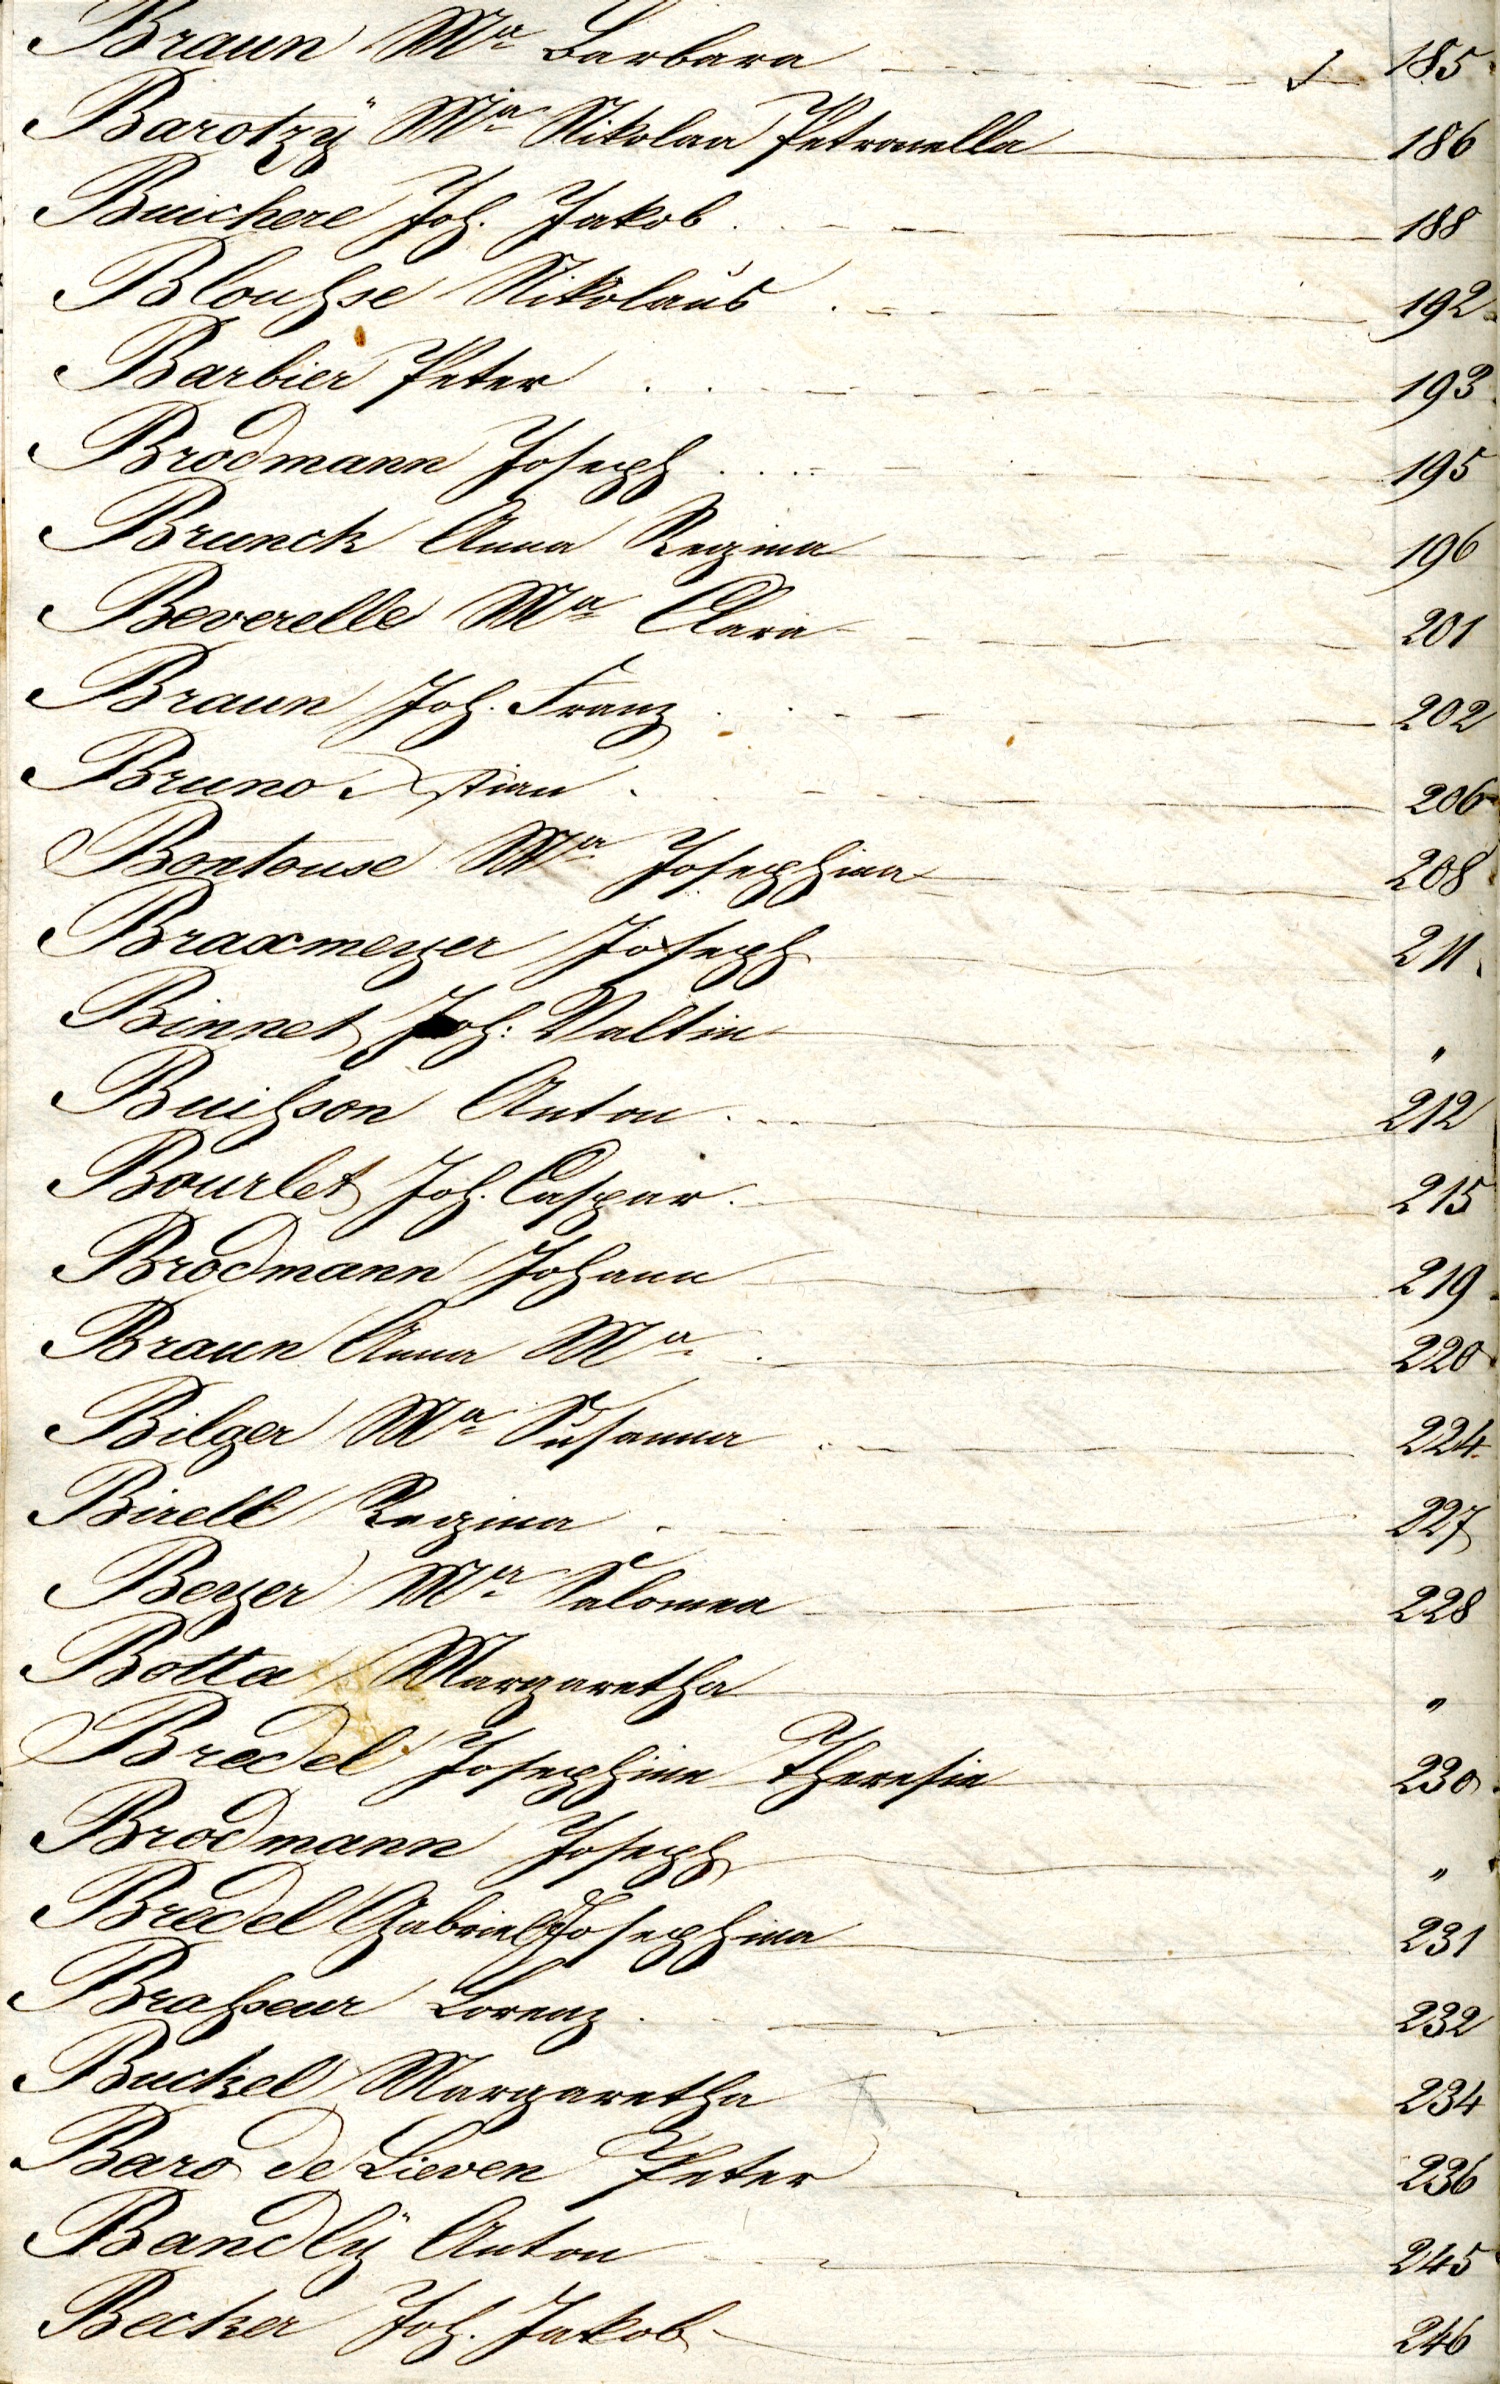 Braun Mª Barbara 185
Barotzÿ Mª Nikolaa Petronella 186
Buichere Joh. Jakob 188
Blouhse Nikolaus 192
Barbier Peter 193
Brodmann Joseph 195
Brunck Anna Regina 196
Beverelle Mª Clara 201
Braun Joh. Franz 202
Bruno Xstian 206
Bontouse Mª Josephina 208
Braxmeyer Joseph 211
Binnet Joh: Valtin "
Buihson Anton 212
Bourlet Joh. Caspar 215
Brodmann Johann 219
Braun Anna Mª 220
Bilger Mª Susanna 224
Birell Regina 227
Beyer Mª Salomea 228
Botta Margaretha "
Bredel Josephina Theresia 230
Brodmann Joseph "
Bredel Gabriel Josephina 231
Brahseur Lorenz 232
Buckel Margaretha 234
Baro de Lieven Peter 236
Bandlÿ Anton 245
Becker Joh. Jakob 246